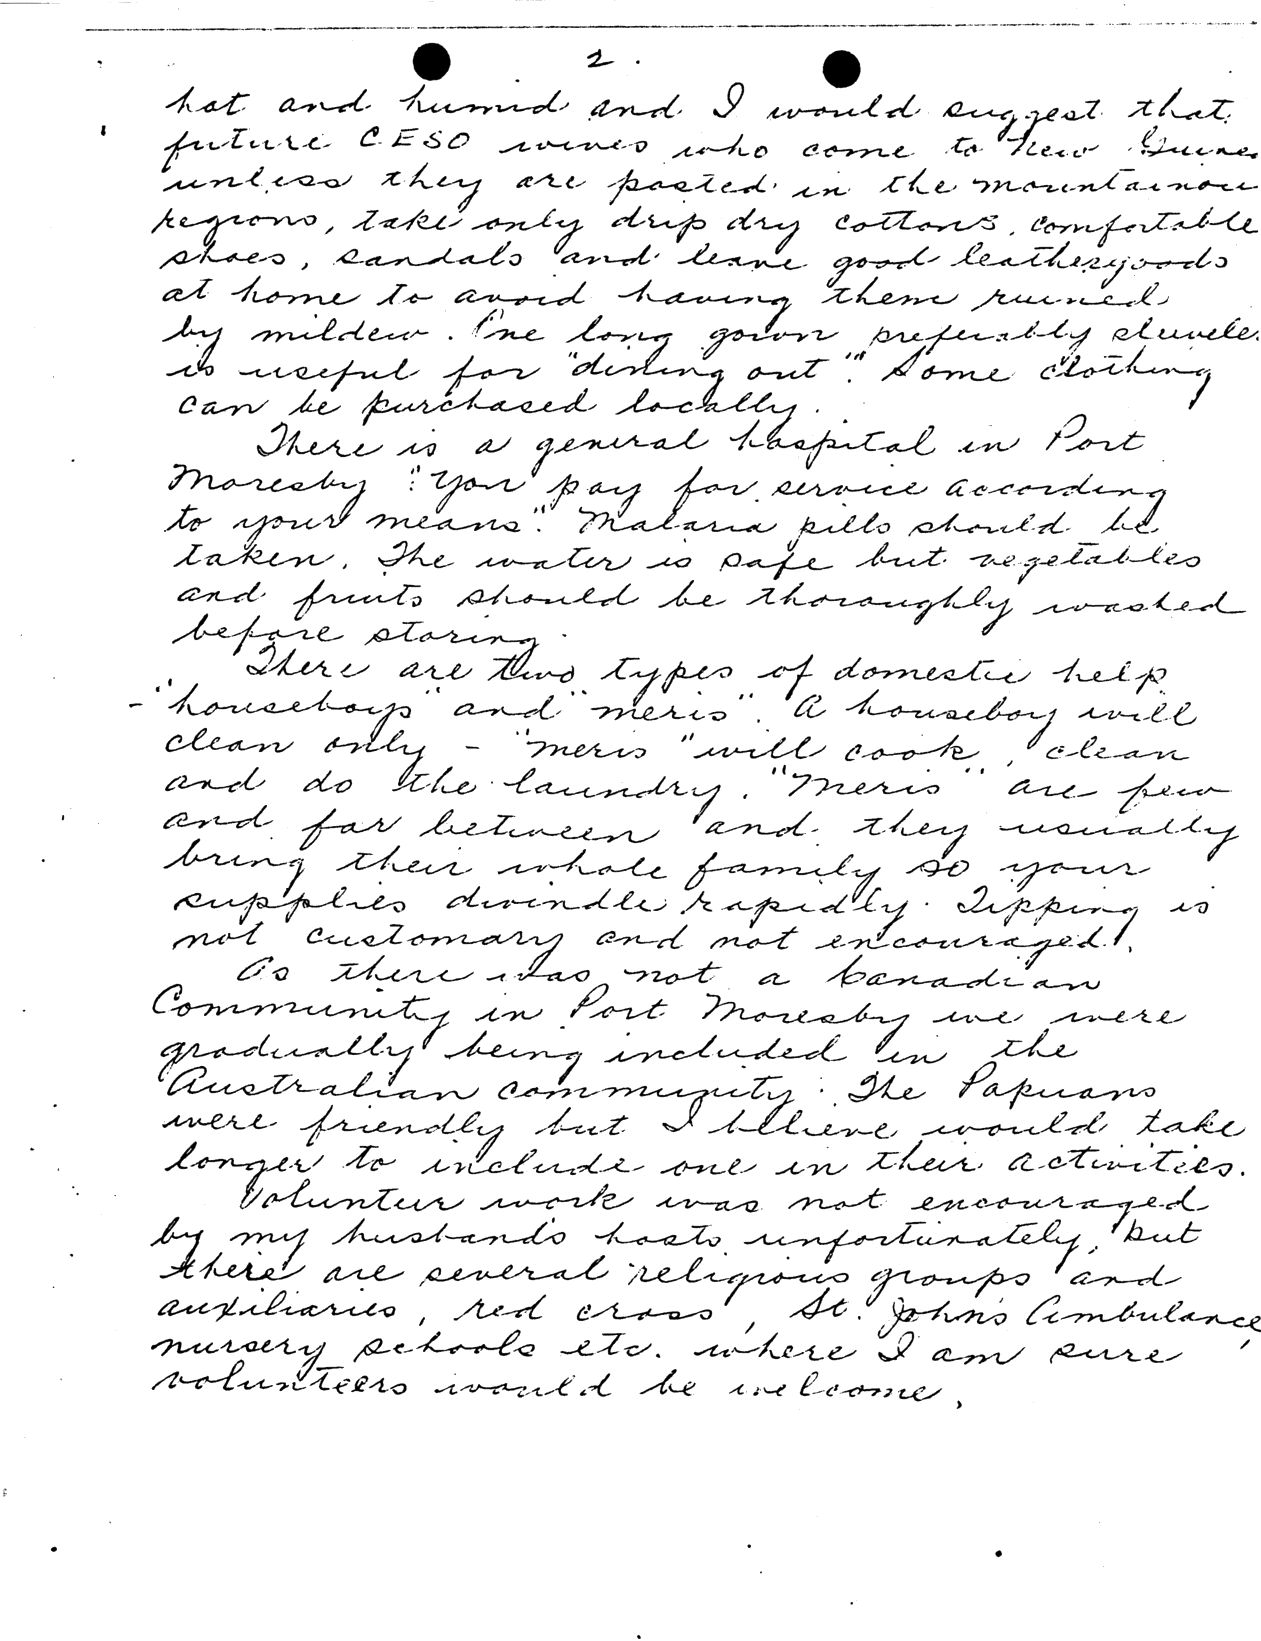 2.
hot and humid and I would suggest that
future CESO wives who come to New Guinea
unless they are posted in the mountainou
regions, take only drip dry cottons, comfortable
shoes, sandals and leave good leathergoods
at home to avoid having them ruined
by mildew. One long gown preferably sleevele
is useful for "dining out". Some clothing
can be purchased locally.
There is a general hospital in Port
Moresby "You pay for service according
to your means". Malaria pills should be
taken. The water is safe but vegetables
and fruits should be thoroughly washed
before storing.
There are two types of domestic help
- "houseboys" and "meris". A houseboy will
clean only - "meris" will cook, clean
and do the laundry. "Meris" are few
and far between and they usually
bring their whole family so your
supplies dwindle rapidly. Tipping is
not customary and not encouraged.
As there was not a Canadian
Community in Port Moresby we were
gradually being included in the
Australian community. The Papuans
were friendly but I believe would take
longer to include one in their activities.
Volunteer work was not encouraged
by my husband's hosts unfortunately, but
there are several religious groups and
auxiliaries, red cross, St. John's Ambulance,
nursery schools etc. where I am sure
volunteers would be welcome.